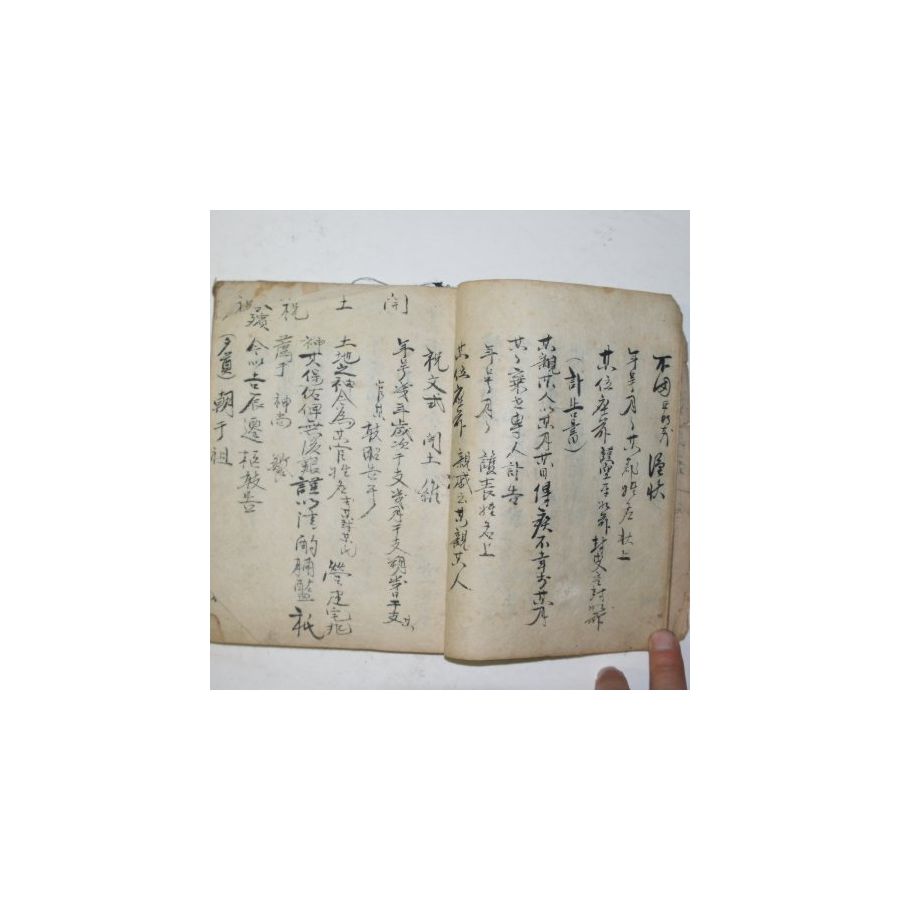 年号月日某郡姓名狀上
某位座前
(訃告書)
某親某人以某月某日得疾不幸於某月
某日棄世專人訃告
年号月日 護喪姓名上
某位座前 親戚云某親某人
祝文式 開土 維
年号幾年歲次干支幾月干支朔幾日干支某
官某 敢昭告于
土地之神今為某官姓名 營建宅兆
神其保佑俾無後艱謹以清酌脯醢祗
薦于神尙饗
今以吉辰遷柩敢告
朝于祖
開土祝